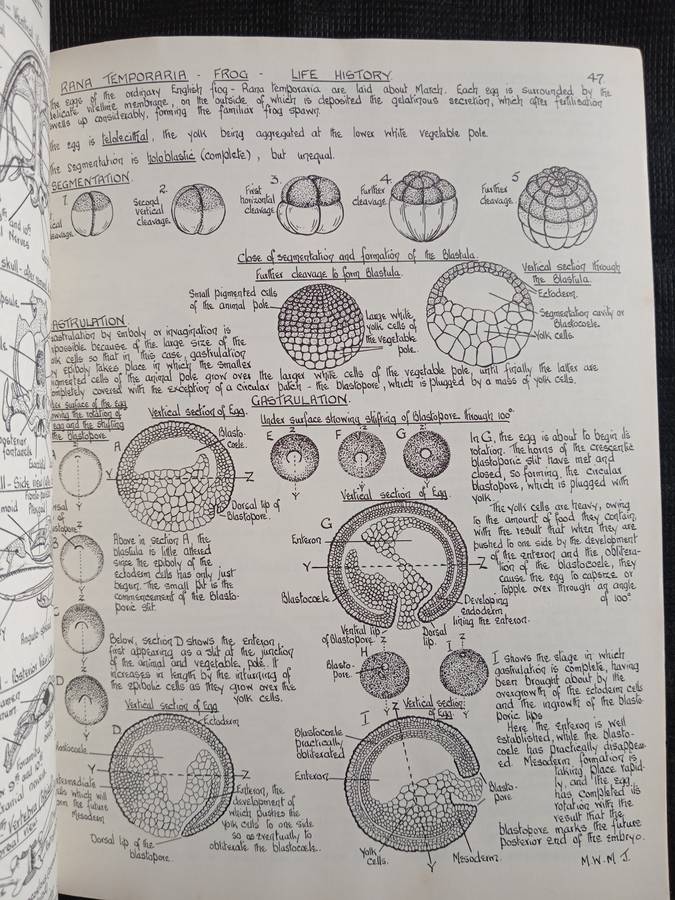 RANA TEMPORARIA - FROG - LIFE HISTORY.
47.
The eggs of the ordinary English frog - Rana Temporaria are laid about March. Each egg is surrounded by the
delicate vitelline membrane, on the outside of which is deposited the gelatinous secretion, which after fertilisation
swells up considerably, forming the familiar frog spawn.
The egg is telolecithal, the yolk being aggregated at the lower white vegetable pole.
The segmentation is holoblastic (complete), but unequal.
SEGMENTATION.
1.
cleavage.
2.
Second
vertical
cleavage.
3.
First
horizontal
cleavage.
4.
Further
cleavage.
5
Further
cleavage.
Close of segmentation and formation of the Blastula.
Further cleavage to form Blastula.
Small pigmented cells
of the animal pole.
Large white
yolk cells of
the vegetable
pole.
Vertical section through
the Blastula.
Ectoderm.
Segmentation cavity or
Blastocoele.
Yolk cells.
GASTRULATION
Gastrulation by emboly or invagination is
impossible because of the large size of the
yolk cells so that in this case, gastrulation
by epiboly takes place in which the smaller
pigmented cells of the animal pole grow over the larger white cells of the vegetable pole, until finally the latter are
completely covered with the exception of a circular patch - the blastopore, which is plugged by a mass of yolk cells.
GASTRULATION.
Under surface of the Egg
showing the rotation of
egg and the shifting
the Blastopore.
Vertical section of Egg.
A
Blasto-
coele.
Z
Y
Dorsal lip of
blastopore.
Under surface showing shifting of Blastopore through 100°
E
Z
Y
F
Z
Y
G
Z
Y
In G, the egg is about to begin its
rotation. The horns of the crescentic
blastoporic slit have met and
closed, so forming the circular
blastopore, which is plugged with
yolk.
The yolk cells are heavy, owing
to the amount of food they contain,
with the result that when they are
pushed to one side by the development
of the enteron and the oblitera-
tion of the blastocoele, they
cause the egg to capsize or
topple over through an angle
of 100°
Vertical section of Egg.
G
Enteron
Y
Z
Blastocoele
Ventral lip
of Blastopore.
Dorsal
lip.
Developing
endoderm
lining the enteron.
B
C
D
Z
Above in section A, the
blastula is little altered
since the epiboly of the
ectoderm cells has only just
begun. The small pit is the
commencement of the blasto-
poric slit.
Below, section D shows the enteron,
first appearing as a slit at the junction
of the animal and vegetable pole. It
increases in length by the inturning of
the epibolic cells as they grow over the
yolk cells.
Vertical section of Egg
D
Ectoderm
Blastocoele
Intermediate
cells which will
form the future
Mesoderm
Dorsal lip of the
blastopore.
Enteron, the
development of
which pushes the
yolk cells to one side
so as eventually to
obliterate the blastocoele.
H
Z
Blasto-
pore.
Y
I
Z
Y
I shows the stage in which
gastrulation is complete, having
been brought about by the
overgrowth of the ectoderm cells
and the ingrowth of the blasto-
poric lips
Here the enteron is well
established, while the blasto-
coele has practically disappear-
ed. Mesoderm formation is
taking place rapid-
ly, and the egg
has completed its
rotation with the
result that the
blastopore marks the future
posterior end of the embryo.
Vertical section
of Egg.
I
Z
Blastocoele
practically
obliterated
Enteron
Blasto-
pore
Yolk
cells.
Y
Mesoderm.
M.W.M J.